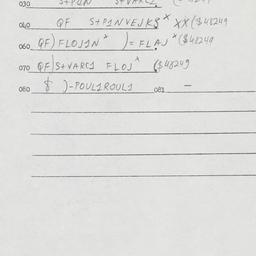 030 S+PUN S+VARCL
040 QF S+P1NVEJKS* XX($48249
060 QF)FLOJ1N* )=FLAJ*($48249
070 QF)S+VARC1 FLOJ* ($48249
080 $ )-POUL1ROUL1 081 -